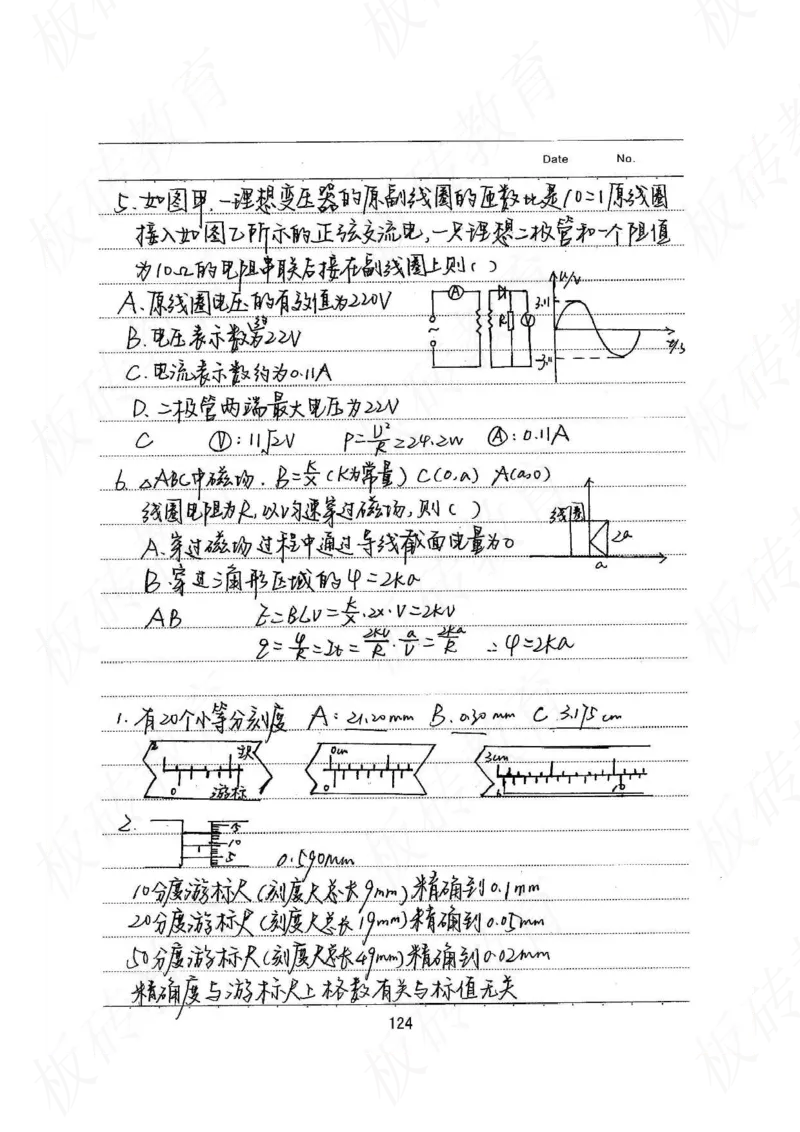 Date No.
5. 如图甲,一理想变压器的原副线圈的匝数比是10:1原线圈
接入如图乙所示的正弦交流电,一只理想二极管和一个阻值
为10Ω的电阻串联后接在副线圈上则( )
A. 原线圈电压的有效值为220V
B. 电压表示数约为22V
C. 电流表示数约为0.11A
D. 二极管两端最大电压为22V
A R V ~ u/v 311 -311 t/s
C Ⓥ:11√2V P=U²/R=24.2W Ⓐ:0.11A
6. △ABC中磁场. B=k/x (K为常量) C(0,a) A(a,0)
线圈电阻为R,以v匀速穿过磁场,则( )
线圈 2a a
A. 穿过磁场过程中通过导线截面电量为0
B. 穿过三角形区域的φ=2ka
AB E=BLV=k/x·2x·V=2kV
q=φ/R=It=2kV/R·a/V=2ka/R ∴φ=2ka
1. 有20个小等分刻度 A: 21.20mm B. 0.30mm C 3.175cm
2 主尺 0 游标
0cm 0
3cm 10
2.
15 10 5
0.590mm
10分度游标尺(刻度尺总长9mm)精确到0.1mm
20分度游标尺(刻度尺总长19mm)精确到0.05mm
50分度游标尺(刻度尺总长49mm)精确到0.02mm
精确度与游标尺上格数有关与标值无关
124
板砖教育